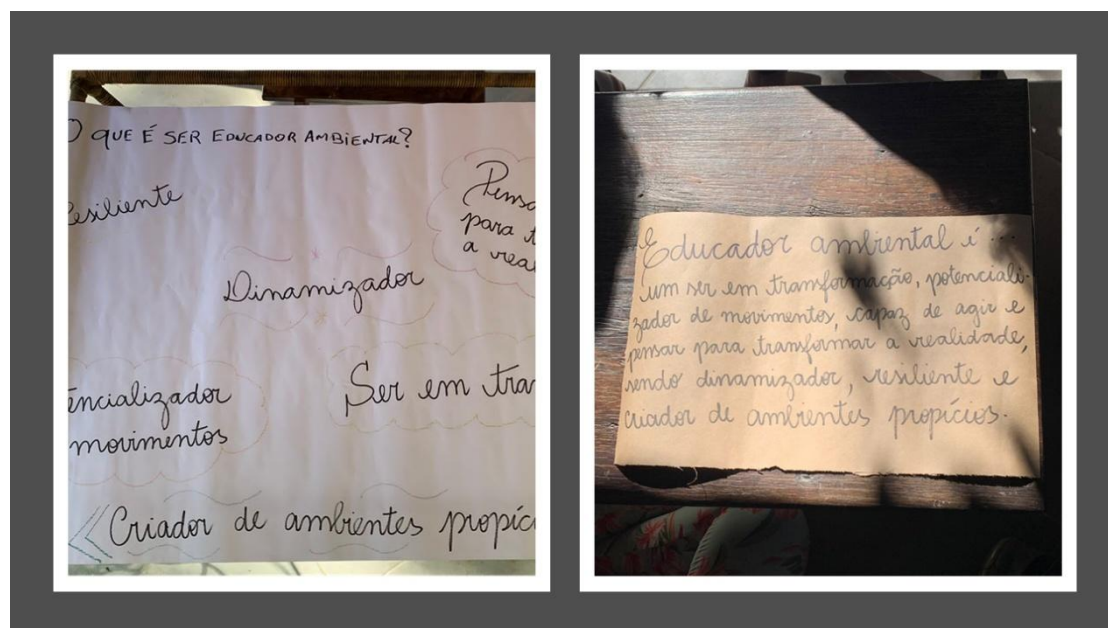 O QUE É SER EDUCADOR AMBIENTAL?
esiliente
Pensa
para t
a real
Dinamizador
encializador
movimentos
Ser em tra
Criador de ambientes propíc
Educador ambiental é...
um ser em transformação, potenciali-
zador de movimentos, capaz de agir e
pensar para transformar a realidade,
sendo dinamizador, resiliente e
criador de ambientes propícios.